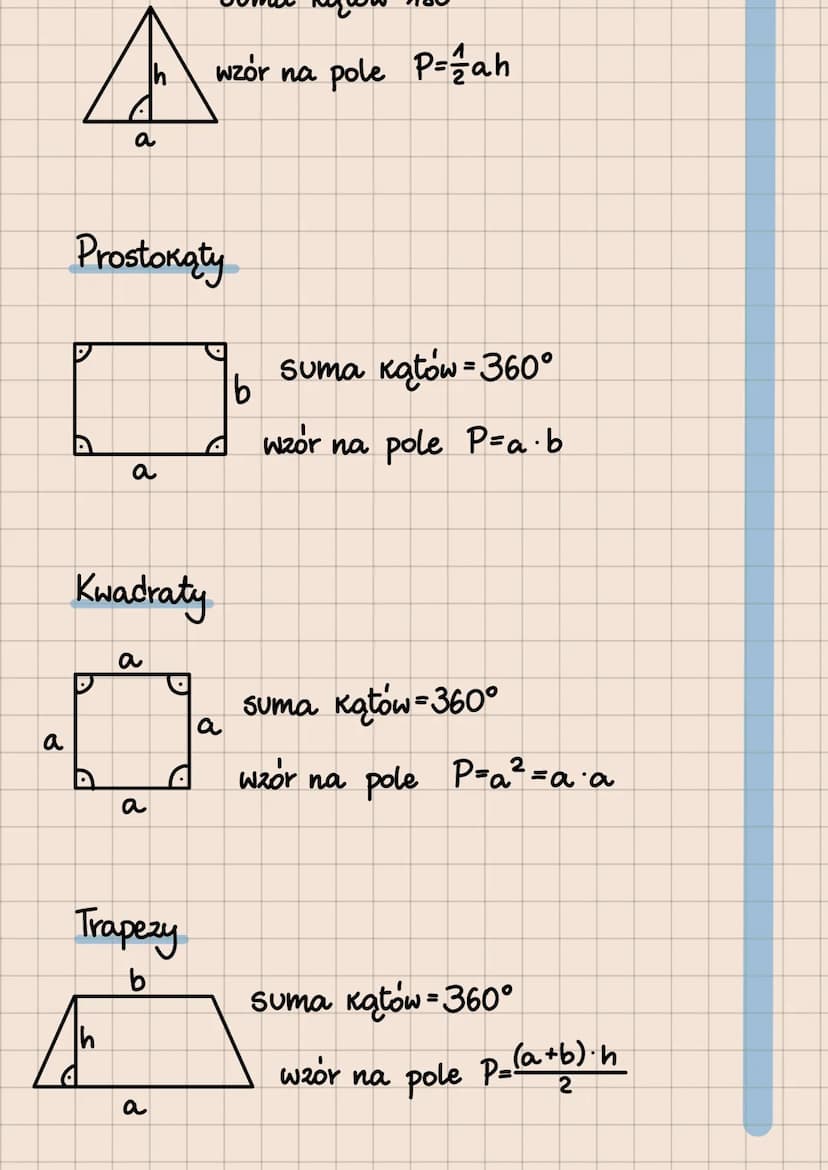 suma kątów 180°
h
wzór na pole P=½ah
a
Prostokąty
suma kątów=360°
b
wzór na pole P=a·b
a
Kwadraty
a
suma kątów=360°
a
a
wzór na pole P=a²=a·a
a
Trapezy
b
suma kątów=360°
h
wzór na pole P=(a+b)·h/2
a